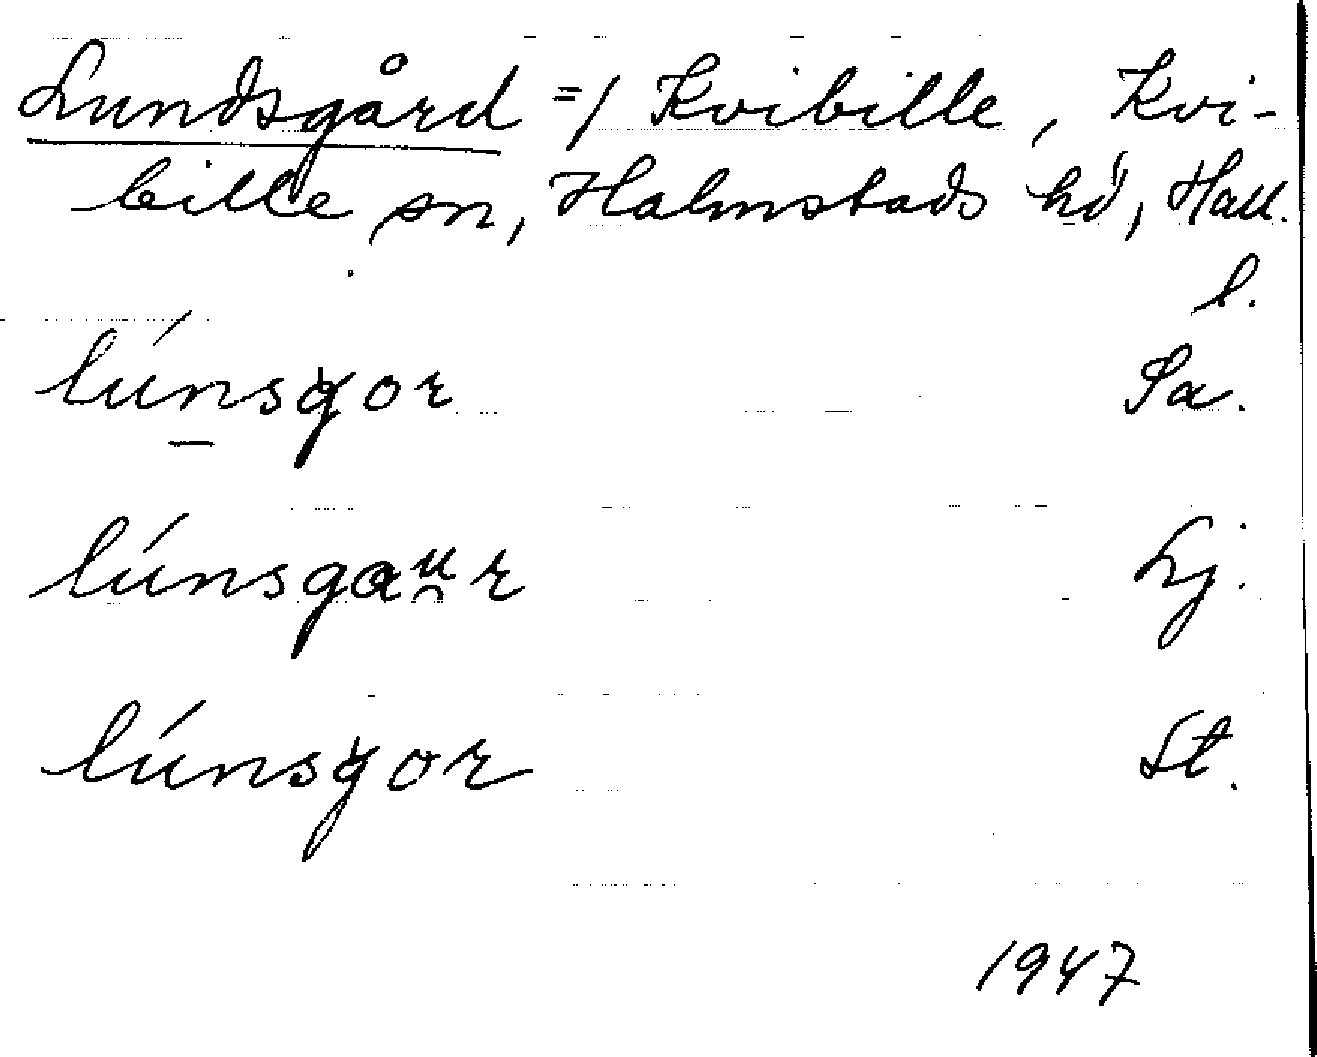 Lundsgård =/ Kvibille, Kvi-
bille sn, Halmstads hd, Hall.
l.
lúnsgor Sa.
lúnsgau̯r Lj.
lúnsgor St.
1947